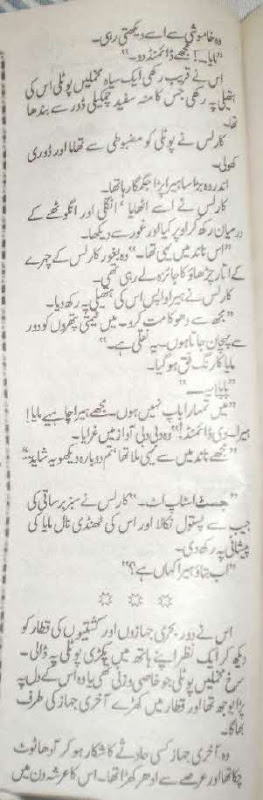 وہ خاموشی سے اسے دیکھتی رہی۔
"مایا۔! مجھے ڈائمنڈ دو۔"
اس نے قریب رکھی ایک سیاہ مخملیں پوٹلی اس کی
ہتھیلی پہ رکھی جس کا منہ سفید چمکیلی ڈور سے بندھا
تھا۔
کارلس نے پوٹلی کو مضبوطی سے تھاما اور ڈوری
کھولی۔
اندر وہ بڑا سا ہیرا پڑا جگمگا رہا تھا۔
کارلس نے اسے اٹھایا' انگلی اور انگوٹھے کے
درمیان رکھ کر اوپر کیا اور غور سے دیکھا۔
"اس ناند میں یہی تھا۔" وہ بغور کارلس کے چہرے
کے اتار چڑھاؤ کا جائزہ لے رہی تھی۔
کارلس نے ہیرا واپس اس کی ہتھیلی پہ رکھ دیا۔
"مجھ سے دھوکا مت کرو۔ میں قیمتی پتھروں کو دور
سے پہچان جاتا ہوں۔ یہ نقلی ہے۔"
مایا کا رنگ فق ہو گیا۔
"پاپا۔ یہ۔۔۔"
"میں تمہارا باپ نہیں ہوں۔ مجھے ہیرا چاہیے مایا!
ہیرا۔ دی ڈائمنڈ!" وہ دبی دبی آواز میں غرایا۔
"مجھے ناند میں سے یہی ملا تھا' ہم دوبارہ دیکھو یہ شاید"
"جسٹ اسٹاپ اٹ۔" کارلس نے سبز برساتی کی
جیب سے پستول نکالا اور اس کی ٹھنڈی نال مایا کی
پیشانی پہ رکھ دی۔
"اب بتاؤ ہیرا کہاں ہے؟"
☼ ☼ ☼
اس نے دور بحری جہازوں اور کشتیوں کی قطار کو
دیکھ کر ایک نظر اپنے ہاتھ میں پکڑی پوٹلی پہ ڈالی۔
سرخ مخملیں پوٹلی جو خاصی وزنی تھی یا وہ اس کے دل پہ
پڑا بوجھ تھا اور قطار میں کھڑے آخری جہاز کی طرف
بھاگا۔
وہ آخری جہاز کسی حادثے کا شکار ہو کر آدھا ٹوٹ
چکا تھا اور عرصے سے ادھر کھڑا تھا۔ اس کا عرشہ دن میں